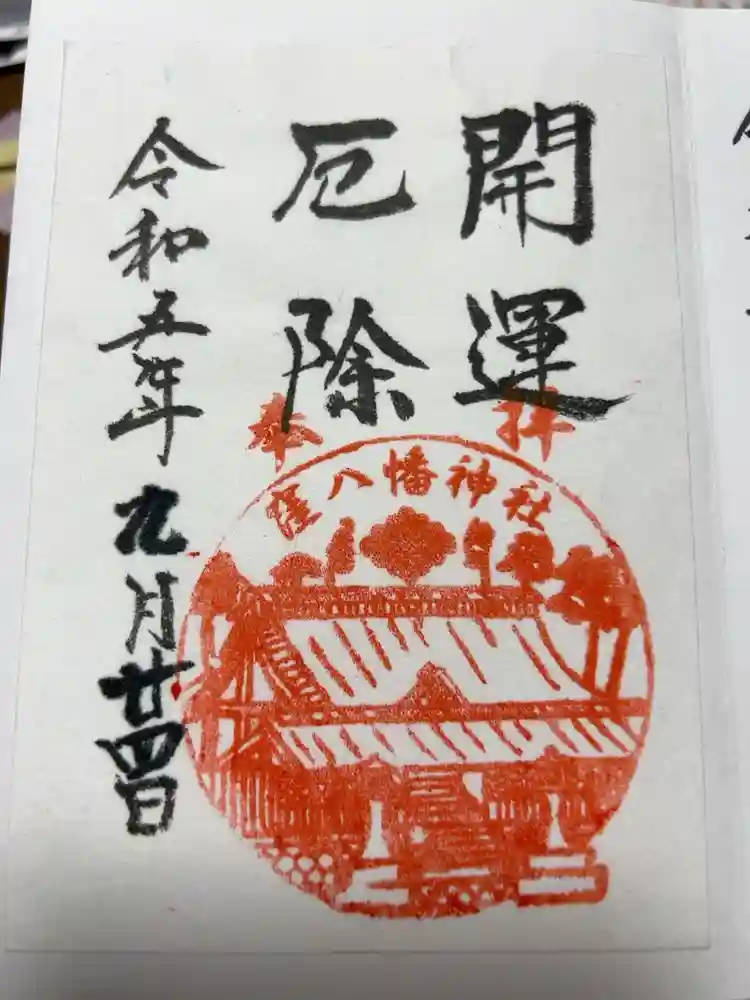 開運
厄除
令和五年九月廿四日
奉拝
窪八幡神社